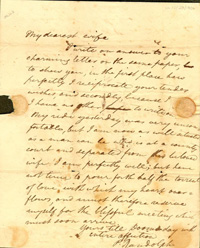 My dearest wife
I write an answer to your
charming letter on the same paper, to
shew you, in the first place how
perfectly I reciprocate your tender
wishes and secondly because I
have no other to write
My ride yesterday was very
fortable, but I am now as well situated
as a man can be at a county
court and separated from his beloved
wife. I am perfectly well but have
not time to pour forth the
of love, with which my heart over
flows, and must therefore
myself for the
must soon
Yours till Doomsday with
entire affection